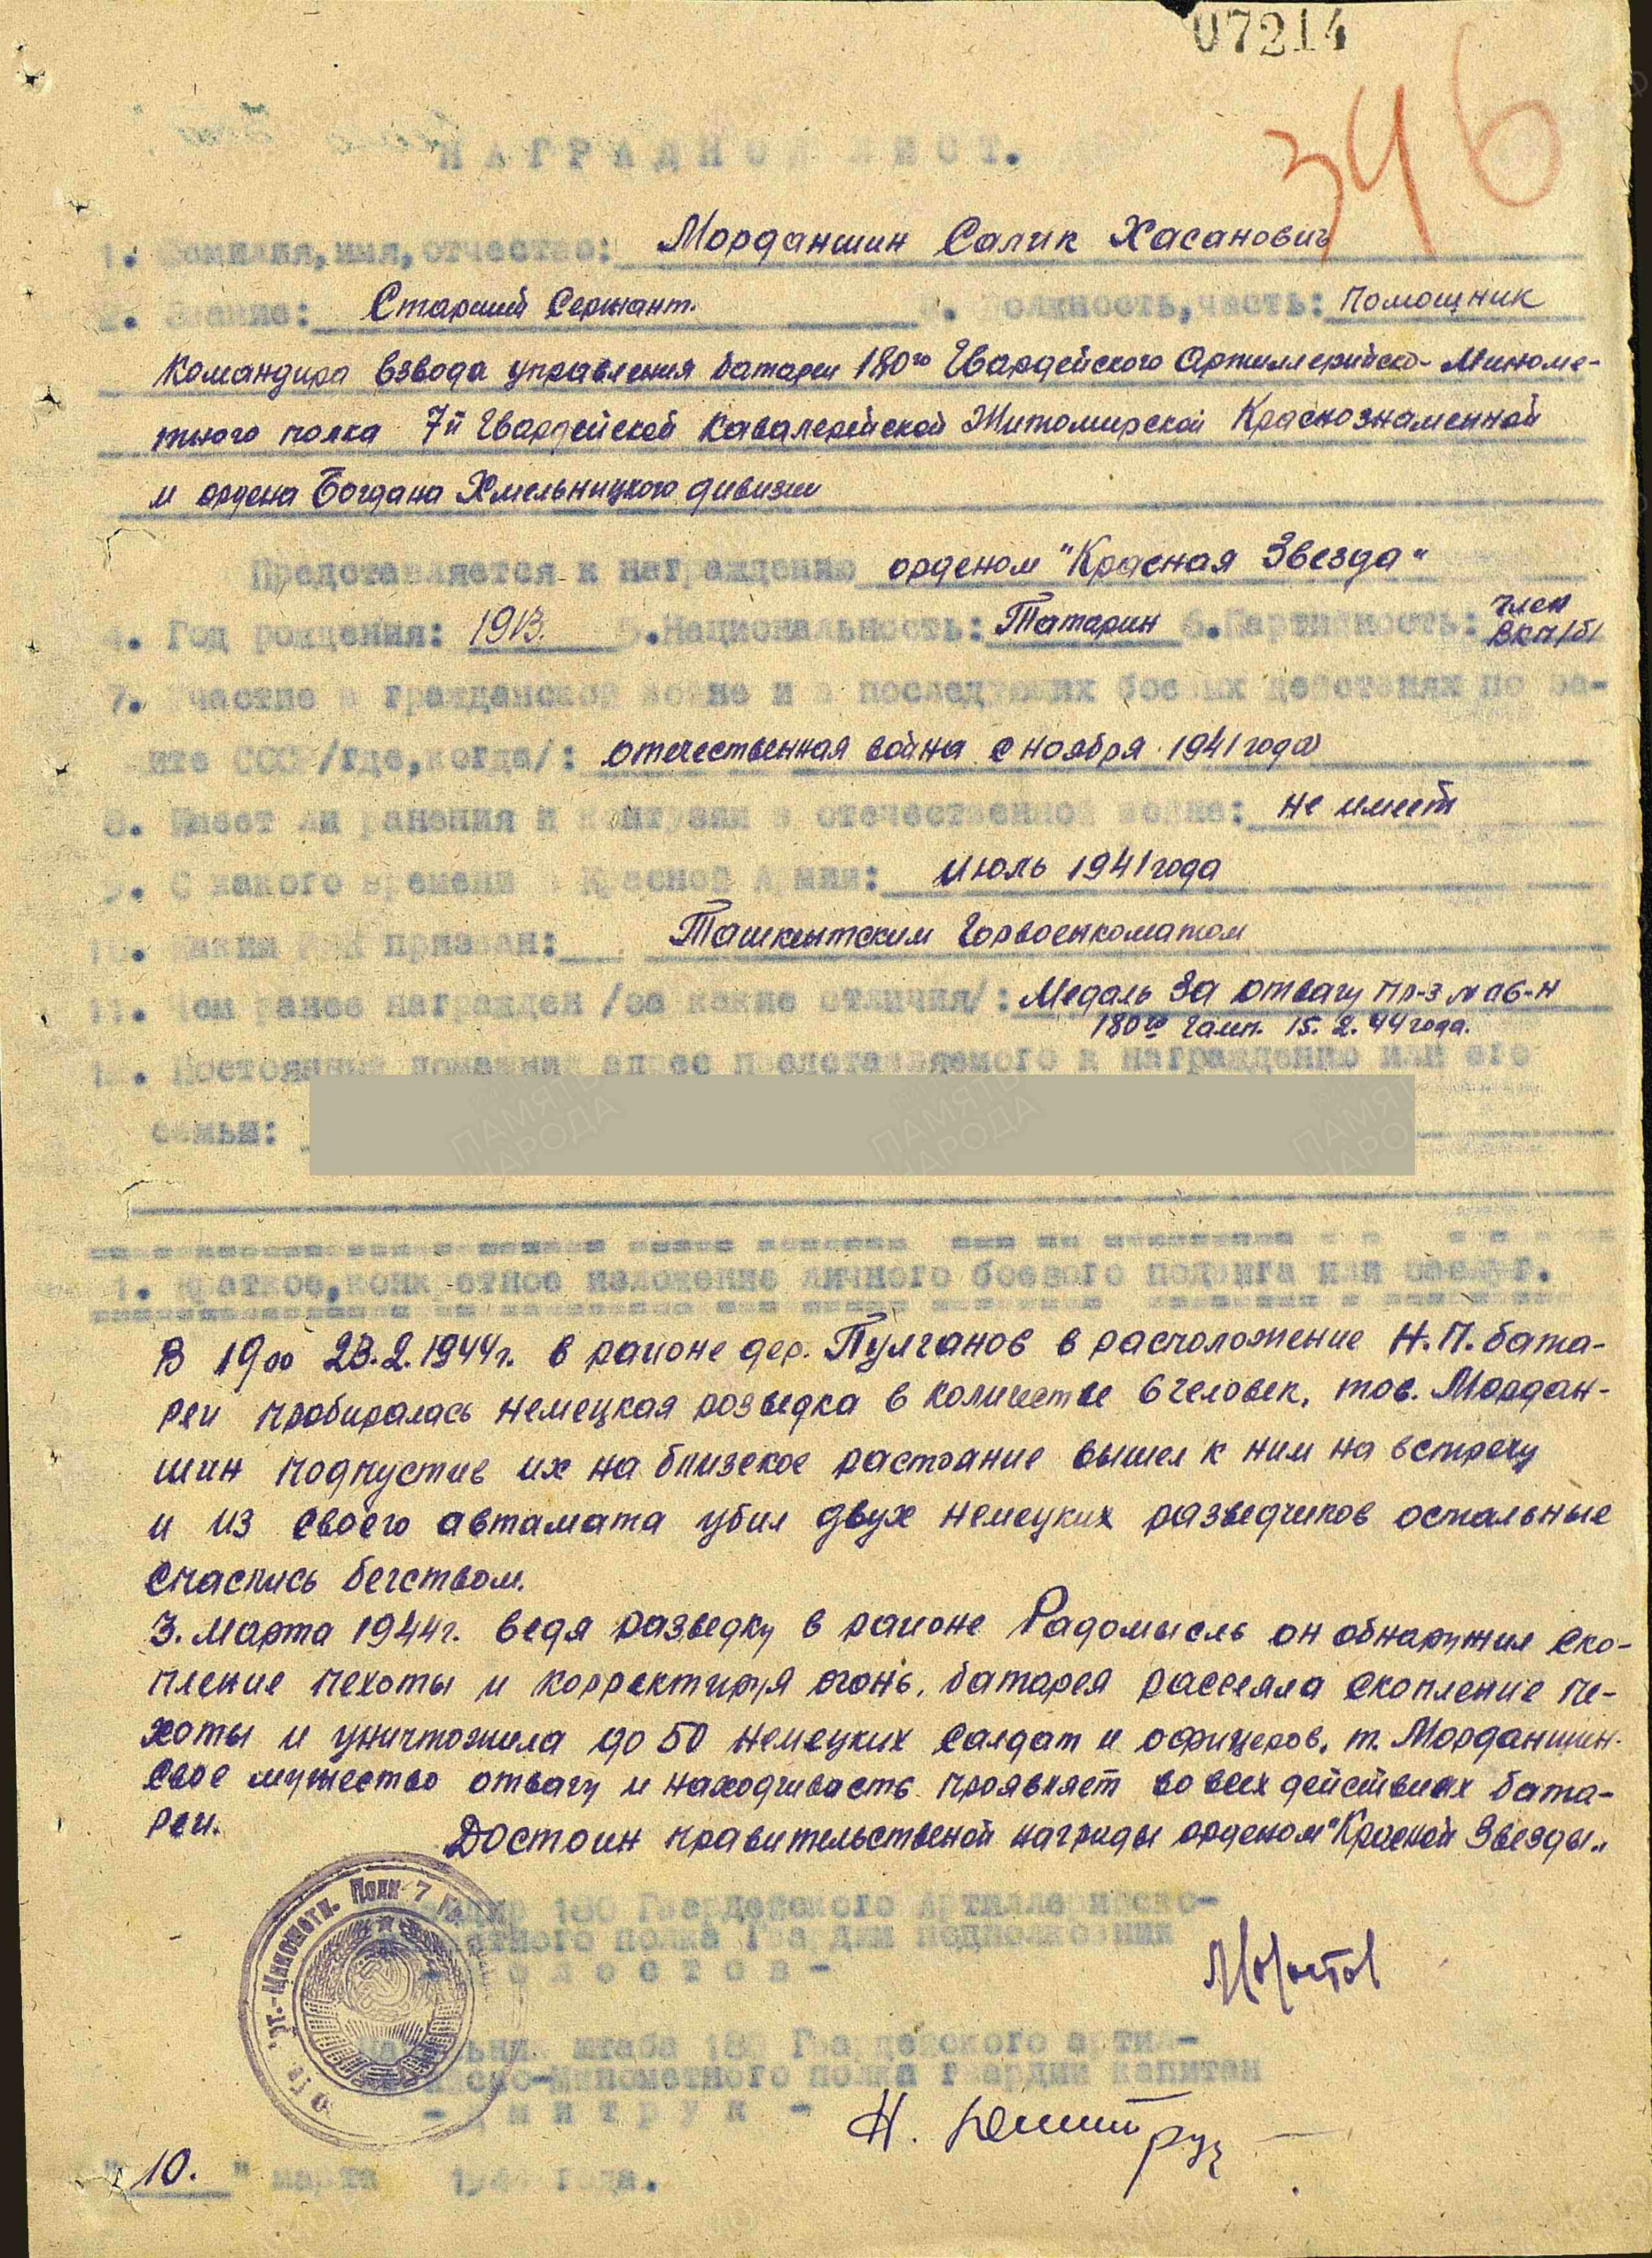 07214
346
НАГРАДНОЙ ЛИСТ.
1. Фамилия, имя, отчество: Морданшин Салик Хасанович
2. Звание: Старший Сержант. 3. Должность, часть: помощник
командира взвода управления батареи 180го Гвардейского Артиллерийско-Миноме-
тного полка 7й Гвардейской Кавалерейской Житомирской Краснознаменной
и ордена Богдана Хмельницкого дивизии
Представляется к награждению орденом "Красная Звезда"
4. Год рождения: 1913. 5. Национальность: Татарин 6. Партийность: член
ВКП/б/
7. Участие в гражданской войне и в последующих боевых действиях по за-
щите СССР /где, когда/: отечественная война с ноября 1941 года
8. Имеет ли ранения и контузии в отечественной войне: не имеет
9. С какого времени в Красной Армии: Июль 1941 года
10. Каким РВК призван: Ташкентским Горвоенкоматом
11. Чем ранее награжден /за какие отличия/: Медаль За отвагу пр-з № 06-н
180го Гамп. 15.2.44 года.
12. Постоянный домашний адрес представляемого к награждению или его
семьи:
1. Краткое, конкретное изложение личного боевого подвига или заслуг.
В 19 00 23.2.1944г. в районе дер. Пулганов в расположение Н.П. бата-
реи пробиралась немецкая розведка в количестве 6 человек, тов. Мордан-
шин подпустив их на близское растояние вышел к ним на встречу
и из своего автамата убил двух немецких разведчиков остальные
спаслись бегством.
3. марта 1944г. ведя разведку в районе Радомысль он обнаружил ско-
пление пехоты и корректируя огонь, батарея рассеяла скопление пе-
хоты и уничтожила до 50 немецких салдат и офицеров, т. Морданшин.
свое мужество отвагу и находчивасть проявляет во всех действиях бата-
реи.
Достоин правительственой награды орденом "Красной Звезды"
Командир 180 Гвардейского Артиллерийско-
Минометного полка Гвардии подполковник
- Молостов -
Молостов
Начальник штаба 180 Гвардейского артил-
лерийско-минометного полка гвардии капитан
- Дмитрук -
Н. Дмитрук
Арт.-Минометн. Полк 7
"10." марта 1944 года.
ПАМЯТЬ НАРОДА
ПАМЯТЬ НАРОДА
ПАМЯТЬ НАРОДА